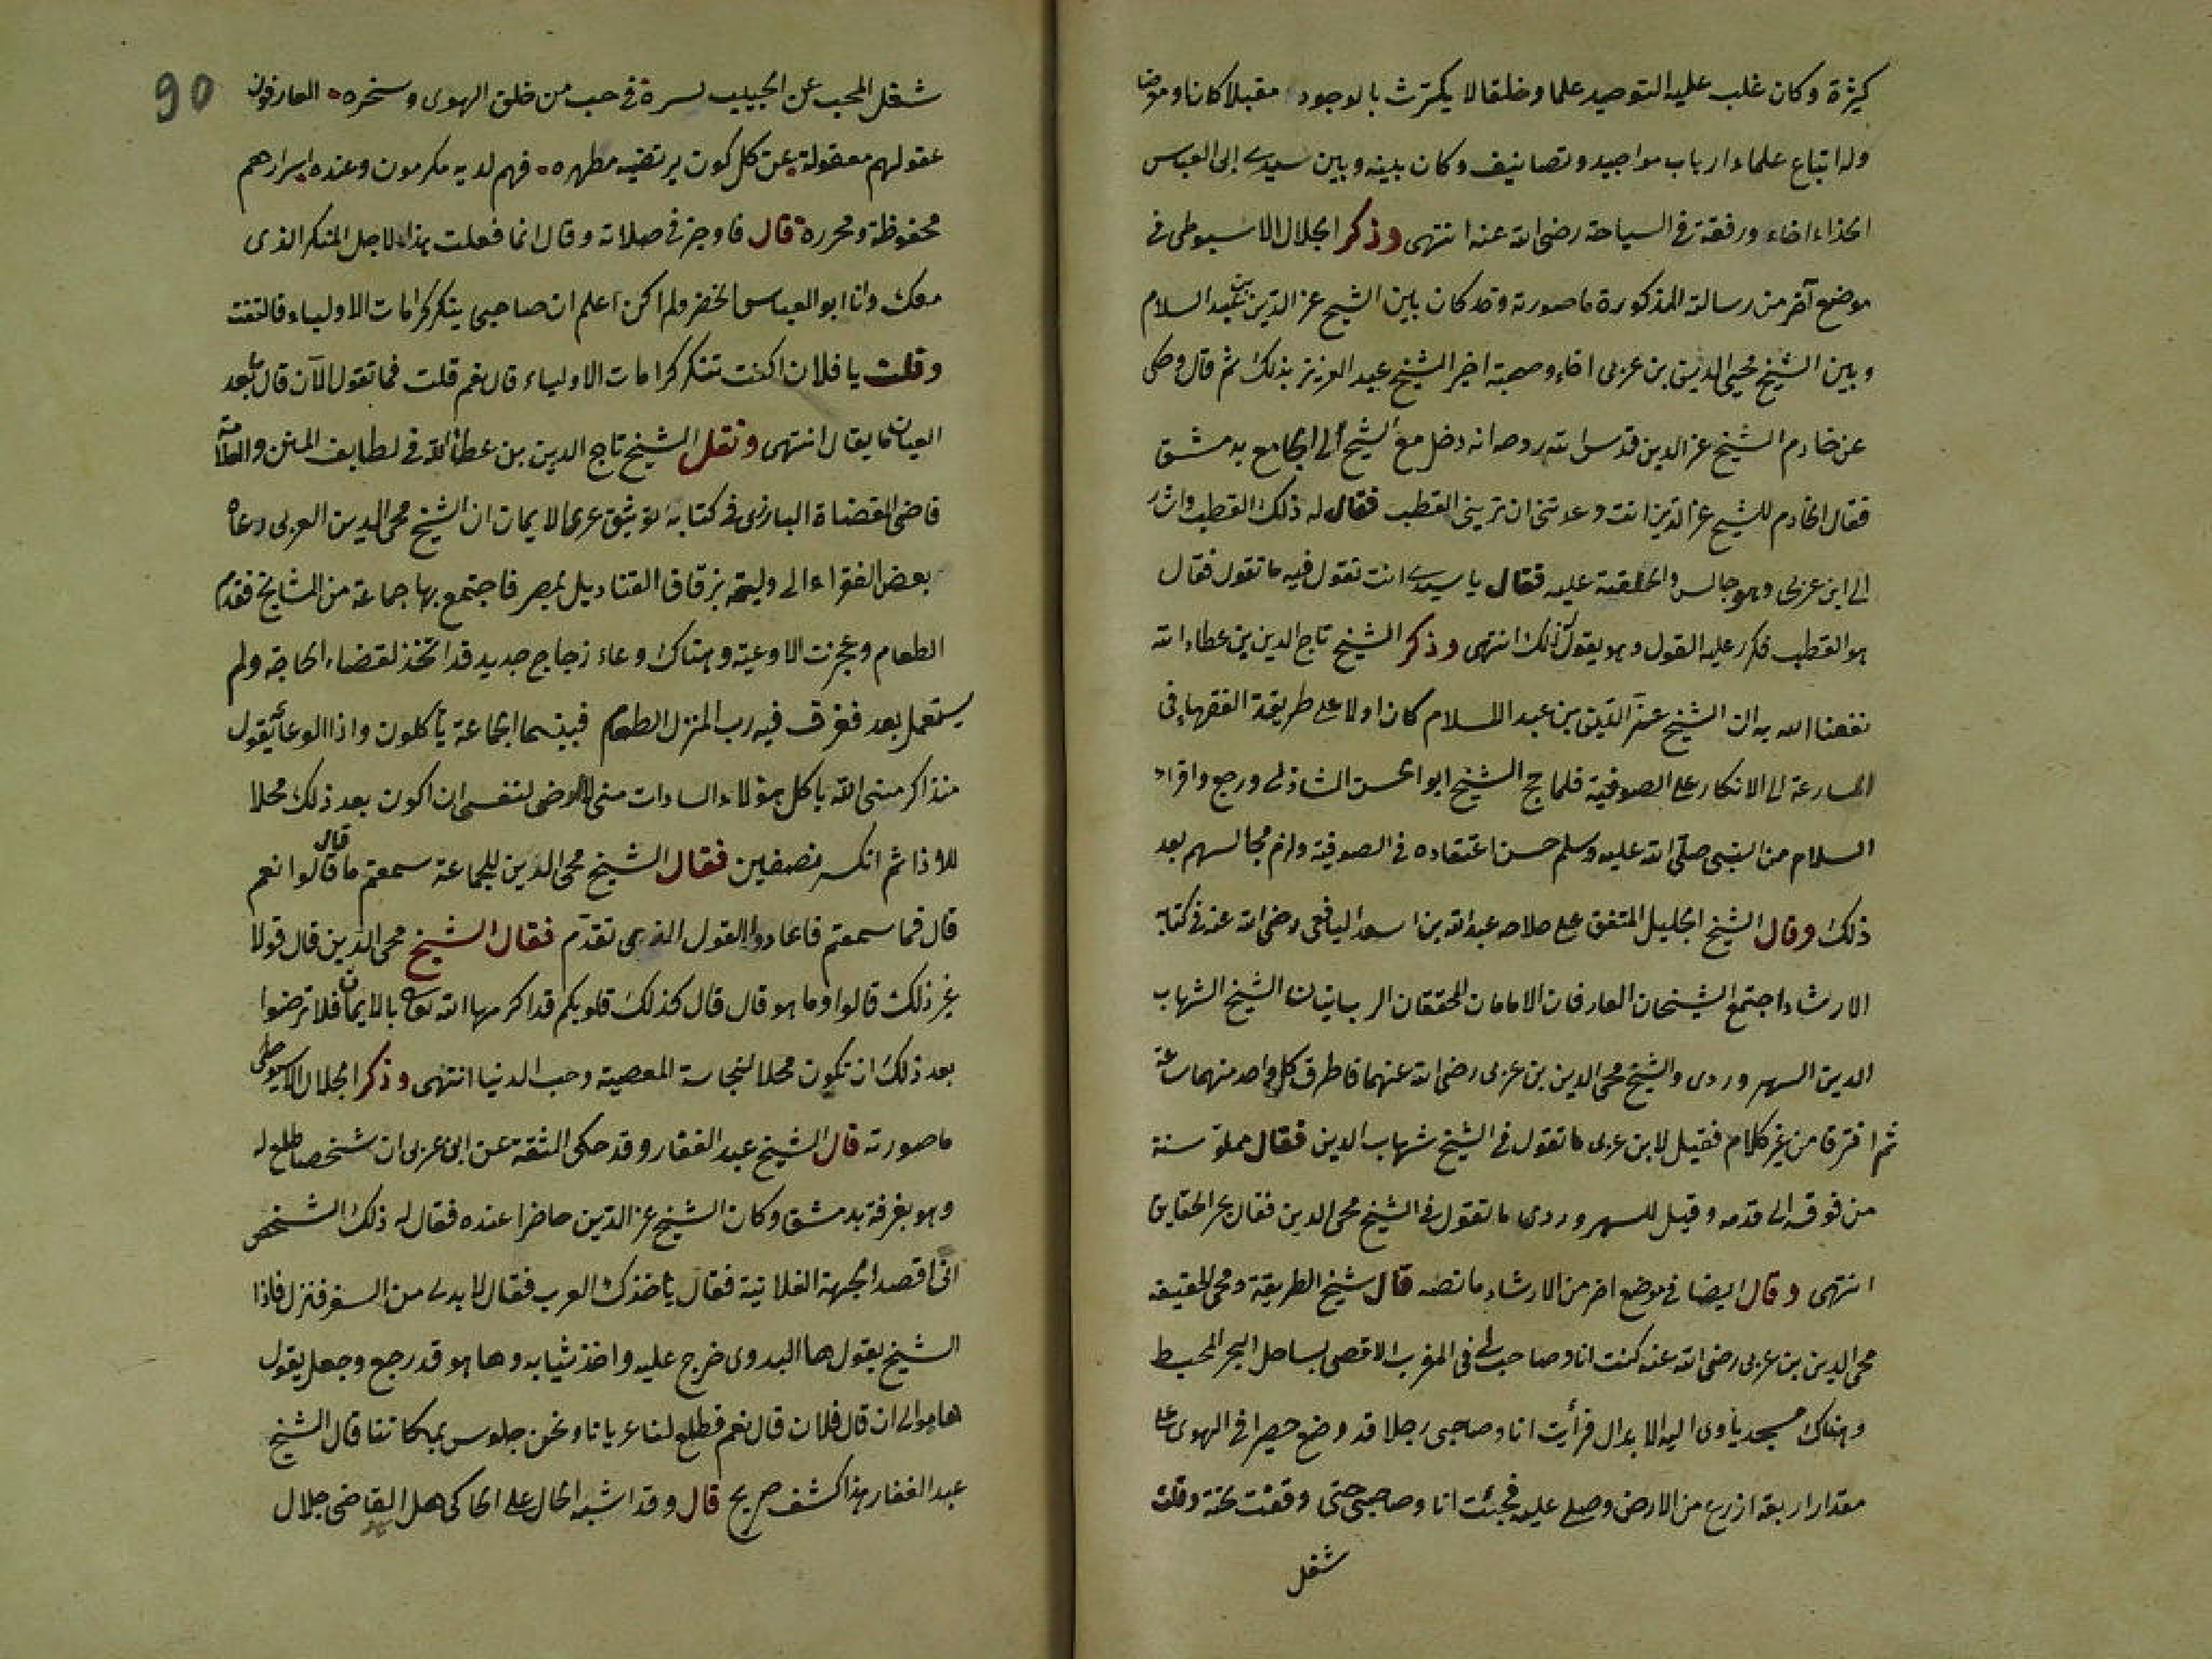 كثيرة وكان غلب عليه التوحيد علما وخلقا لا يكترث بالوجود مقبلا كان او معرضا
وله اتباع علماء ارباب مواجيد وتصانيف وكان بينه وبين سيدى ابى العباس
الحذاء اخاء ورفقة فى السياحة رضى الله عنه انتهى وذكر الجلال الاسيوطى فى
موضع آخر من رسالته المذكورة ما صورته وقد كان بين الشيخ عز الدين بن عبد السلام
وبين الشيخ محيى الدين بن عربى اخاء وصحبة اخبر الشيخ عبد العزيز بذلك ثم قال وحكى
عن خادم الشيخ عز الدين قدس الله روحه انه دخل مع الشيخ الى الجامع بدمشق
فقال الخادم للشيخ عز الدين انت وعدتنى ان ترينى القطب فقال له ذلك القطب واشار
الى ابن عربى وهو جالس والحلقة عليه فقال يا سيدى انت تقول فيه ما تقول فقال
هو القطب فكرر عليه القول وهو يقول كذلك انتهى وذكر الشيخ تاج الدين بن عطاء الله
نفعنا الله به ان الشيخ عز الدين بن عبد السلام كان اولا على طريقة الفقهاء فى
المسارعة الى الانكار على الصوفية فلما حج الشيخ ابو الحسن الشاذلى ورجع واقراه
السلام من النبى صلى الله عليه وسلم حسن اعتقاده فى الصوفية ولزم مجالسهم بعد
ذلك وقال الشيخ الجليل المتفق على صلاحه عبد الله بن اسعد اليافعى رضى الله عنه فى كتابه
الارشاد اجتمع الشيخان العارفان الامامان المحققان الربانيان الشيخ الشهاب
الدين السهروردى والشيخ محى الدين بن عربى رضى الله عنهما فاطرق كل واحد منهما ساعة
ثم افترقا من غير كلام فقيل لابن عربى ما تقول فى الشيخ شهاب الدين فقال مملوّ سنة
من فوقه الى قدمه وقيل للسهروردى ما تقول فى الشيخ محى الدين فقال بحر الحقايق
انتهى وقال ايضا فى موضع اخر من الارشاد ما نصه قال شيخ الطريقة ومحى الحقيقة
محى الدين بن عربى رضى الله عنه كنت انا وصاحب لى فى المغرب الاقصى بساحل البحر المحيط
وهناك مسجد يأوى اليه الابدال فرأيت انا وصاحبى رجلا قد وضع حصيرا فى الهوى على
مقدار اربعة اذرع من الارض وصلى عليه فجئت انا وصاحبى حتى وقفت تحته وقلت
شغل
90
شغل المحب عن الحبيب بسره فى حب من خلق الهوى وسخره العارفون
عقولهم معقولة عن كل كون يرتضيه مطهره فهم لديه مكرمون وعنده اسرارهم
محفوظة ومحررة قال فاوجز فى صلاته وقال انما فعلت بهذا لاجل المنكر الذى
معك وانا ابو العباس الخضر ولم اكن اعلم ان صاحبى ينكر كرامات الاولياء فالتفت
وقلت يا فلان اكنت تنكر كرامات الاولياء قال نعم قلت فما تقول الآن قال ما بعد
العيان ما يقال انتهى ونقل الشيخ تاج الدين بن عطاء الله فى لطايف المنن والعلامة
قاضى القضاة البارزى فى كتابه توثيق عرى الايمان ان الشيخ محى الدين العربى دعاه
بعض الفقراء الى وليمة بزقاق القناديل بمصر فاجتمع بها جماعة من المشايخ فقدم
الطعام وعجزت الاوعية وهناك وعاء زجاج جديد قد اتخذ لقضاء الحاجة ولم
يستعمل بعد فغرف فيه رب المنزل الطعام فبينما الجماعة يأكلون واذا الوعاء يقول
منذ اكرمنى الله باكل هؤلاء السادات منى لا ارضى لنفسى ان اكون بعد ذلك محلا
للاذا ثم انكسر نصفين فقال الشيخ محى الدين للجماعة سمعتم ما قال قالوا نعم
قال فما سمعتم فاعادوا القول الذى تقدّم فقال الشيخ محى الدين قال قولا
غير ذلك قالوا وما هو قال قال كذلك قلوبكم قد اكرمها الله تعالى بالايمان فلا ترضوا
بعد ذلك ان تكون محلا لنجاسة المعصية وحب الدنيا انتهى وذكر الجلال الاسيوطى
ما صورته قال الشيخ عبد الغفار وقد حكى الثقة عن ابن عربى ان شخصا طلع له
وهو بغرفة بدمشق وكان الشيخ عز الدين حاضرا عنده فقال له ذلك الشخص
انى اقصد الجهة الفلانية فقال يأخذك العرب فقال لا بد لى من السفر فنزل فاذا
الشيخ يقول ها البدوى خرج عليه واخذ ثيابه وها هو قد رجع وجعل يقول
ها هو الى ان قال فلان قال نعم فطلع لنا عريانا ونحن جلوس بمكاننا قال الشيخ
عبد الغفار هذا كشف صريح قال وقد اشبه الحال على الحاكى هل القاضى جلال